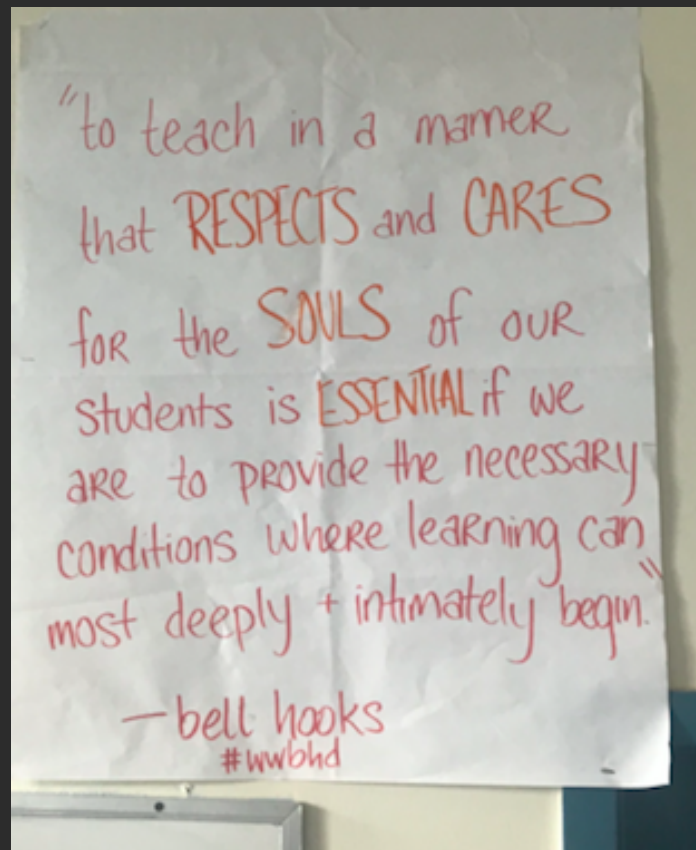 "to teach in a manner
that RESPECTS and CARES
for the SOULS of our
students is ESSENTIAL if we
are to provide the necessary
conditions where learning can
most deeply + intimately begin."
—bell hooks
#wwbhd